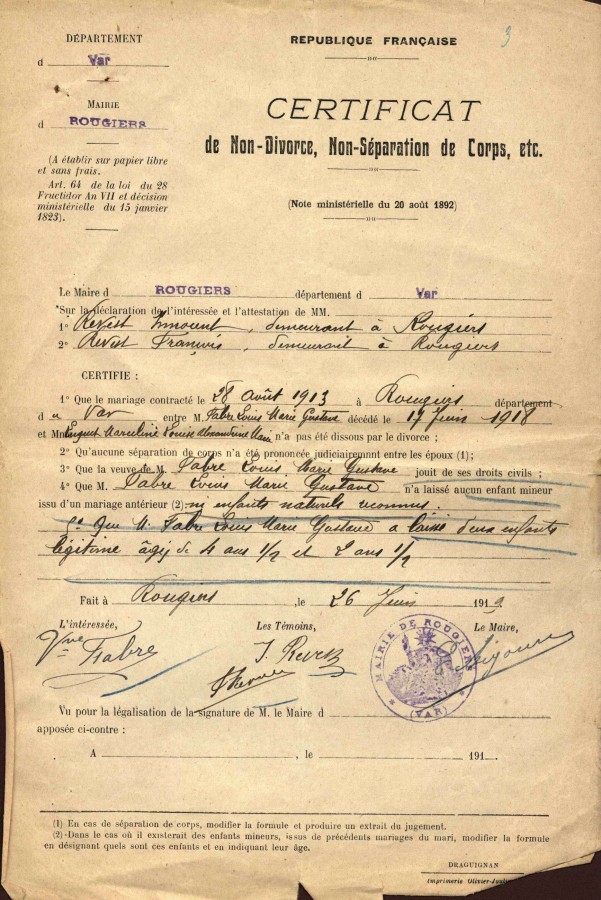 DÉPARTEMENT
d Var
MAIRIE
d ROUGIERS
(A établir sur papier libre
et sans frais.
Art. 64 de la loi du 28
Fructidor An VII et décision
ministérielle du 15 janvier
1823).
REPUBLIQUE FRANÇAISE
3
CERTIFICAT
de Non-Divorce, Non-Séparation de Corps, etc.
(Note ministérielle du 20 août 1892)
Le Maire d ROUGIERS département d Var
Sur la déclaration de l'intéressée et l'attestation de MM.
1° Revest, demeurant à Rougiers
2° Revest François, demeurait à Rougiers
CERTIFIE :
1° Que le mariage contracté le 28 Août 1913 à Rougiers département
d u Var entre M. Fabre Louis Marie Gustave décédé le 17 Juin 1918
et Mme Marceline Louise Alexandrine Marie n'a pas été dissous par le divorce ;
2° Qu'aucune séparation de corps n'a été prononcée judiciairemnnt entre les époux (1) ;
3° Que la veuve de M. Fabre Louis Marie Gustave jouit de ses droits civils ;
4° Que M. Fabre Louis Marie Gustave n'a laissé aucun enfant mineur
issu d'un mariage antérieur (2) ni enfants naturels reconnus.
5° Que M. Fabre Louis Marie Gustave a laissé deux enfants
légitime âgés de 4 ans 1/2 et 2 ans 1/2
Fait à Rougiers, le 26 Juin 1919
L'intéressée, Les Témoins, Le Maire,
Vve Fabre
MAIRIE DE ROUGIERS
(VAR)
Vu pour la légalisation de la signature de M. le Maire d
apposée ci-contre :
A , le 191
(1) En cas de séparation de corps, modifier la formule et produire un extrait du jugement.
(2) Dans le cas où il existerait des enfants mineurs, issus de précédents mariages du mari, modifier la formule
en désignant quels sont ces enfants et en indiquant leur âge.
DRAGUIGNAN
Imprimerie